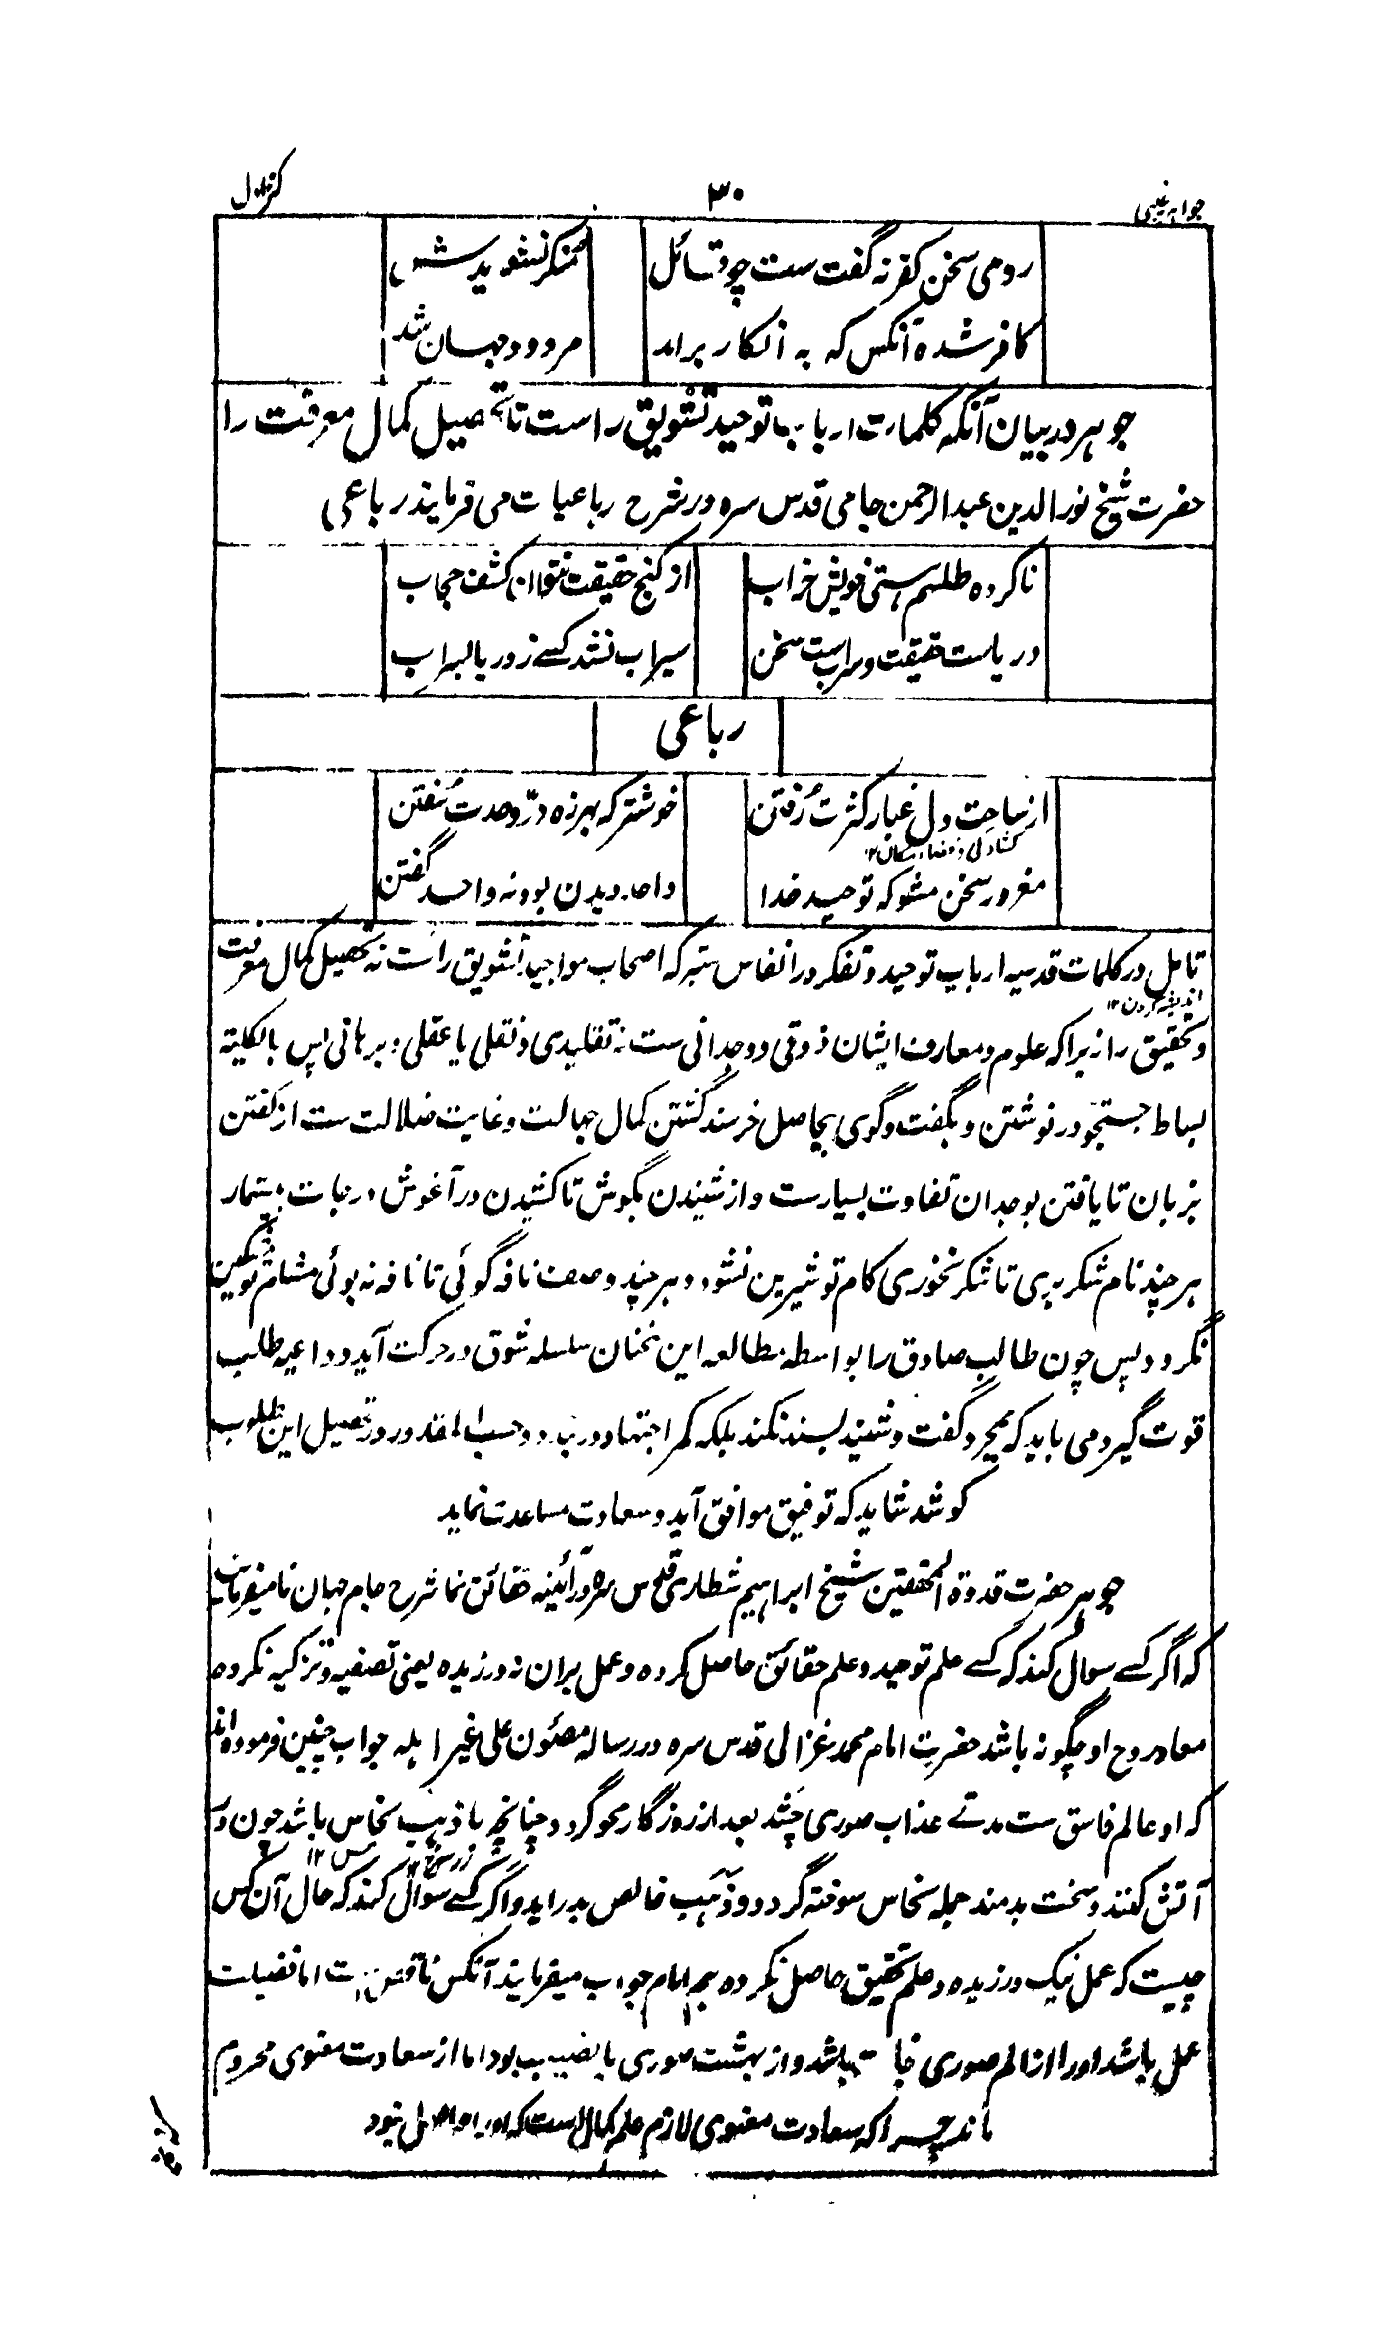 جواہر غیبی ۳۰ کنز اول
رومی سخن کفر نہ گفت ست چو قائل منکر نشویدش
کافر شدہ آنکس کہ بہ انکار برآمد مردود جہان شد
جوہر در بیان آنکہ کلمات ارباب توحید تشویق راست تا تحصیل کمال معرفت را
حضرت شیخ نور الدین عبد الرحمن جامی قدس سرہ در شرح رباعیات می فرمایند رباعی
ناکردہ طلسم ہستی خویش خراب از کنج حقیقت نتوان کشف حجاب
دریاست حقیقت و سراب ست سخن سیراب نشد کسے ز دریا بسراب
رباعی
از ساحت دل غبار کثرت رُفتن خوشتر کہ بہرزہ درّ وحدت سُفتن
کشادگی و فضاء مکان ۱۲
مغرور سخن مشو کہ توحید خدا واحد دیدن بود نہ واحد گفتن
تامل در کلمات قدسیہ ارباب توحید و تفکر در انفاس متبرکہ اصحاب مواجید تشویق راست نہ تحصیل کمال معرفت
اندیشہ کردن ۱۲
و تحقیق را زیرا کہ علوم و معارف ایشان ذوقی و وجدانی ست نہ تقلیدی و نقلی یا عقلی و برہانی پس بالکلیتہ
بساط جستجو در نوشتن و بگفت و گوی بیحاصل خرسند گشتن کمال جہالت و غایت ضلالت ست از گفتن
بزبان تا یافتن بوجدان تفاوت بسیارست و از شنیدن بگوش تا کشیدن در آغوش درجات بیشمار
ہر چند نام شکر بری تا شکر نخوری کام تو شیرین نشود و ہر چند وصف نافہ گوئی تا نافہ نہ بوئی مشام تو مشکین
نگردد پس چون طالب صادق را بواسطہ مطالعہ این سخنان سلسلہ شوق در حرکت آید و داعیہ طلب
قوت گیرد می باید کہ بمجرد گفت و شنید بسند نکند بلکہ کمر اجتہاد در بندد و حسب المقدور در تحصیل این مطلوب
کوشد شاید کہ توفیق موافق آید و سعادت مساعدت نماید
جوہر حضرت قدوۃ المحققین شیخ ابراہیم شطاری قدس سرہ در آئینہ حقائق نما شرح جام جہان نما میفرمایند
کہ اگر کسے سوال کند کہ کسے علم توحید و علم حقائق حاصل کردہ و عمل بران نہ ورزیدہ یعنی تصفیہ و تزکیہ نکردہ
معاد روح او چگونہ باشد حضرت امام محمد غزالی قدس سرہ در رسالہ مضنون علی غیر اہلہ جواب چنین فرمودہ اند
کہ او عالم فاسق ست مدتے عذاب صوری چشد بعد از روزگار محو گردد چنانچہ با ذہب نحاس باشد چون در
زر سرخ ۱۲ مس ۱۲
آتش کنند و سخت بدمند جملہ نحاس سوختہ گردد و ذہب خالص بدر آید و اگر کسے سوال کند کہ حال آن کس
چیست کہ عمل نیک ورزیدہ و علم تحقیق حاصل نکردہ ہم امام جواب میفرمایند آنکس ناقص ست اما فضیلت
عمل باشد او را از الم صوری نجات باشد و از بہشت صوری با نصیب بود اما از سعادت معنوی محروم
ماند چرا کہ سعادت معنوی لازم علم کمال ست کہ او را حاصل نبود